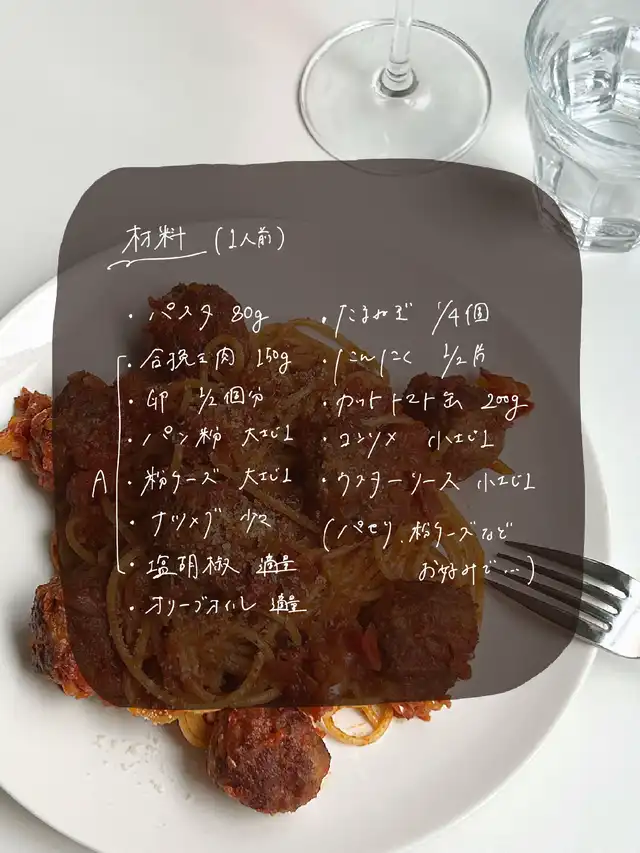 材料 (1人前)
・パスタ 80g
A
・合挽き肉 150g
・卵 1/2個分
・パン粉 大さじ1
・粉チーズ 大さじ1
・ナツメグ 少々
・塩胡椒 適量
・オリーブオイル 適量
・たまねぎ 1/4個
・にんにく 1/2片
・カットトマト缶 200g
・コンソメ 小さじ1
・ウスターソース 小さじ1
(パセリ、粉チーズなど
お好みで…)